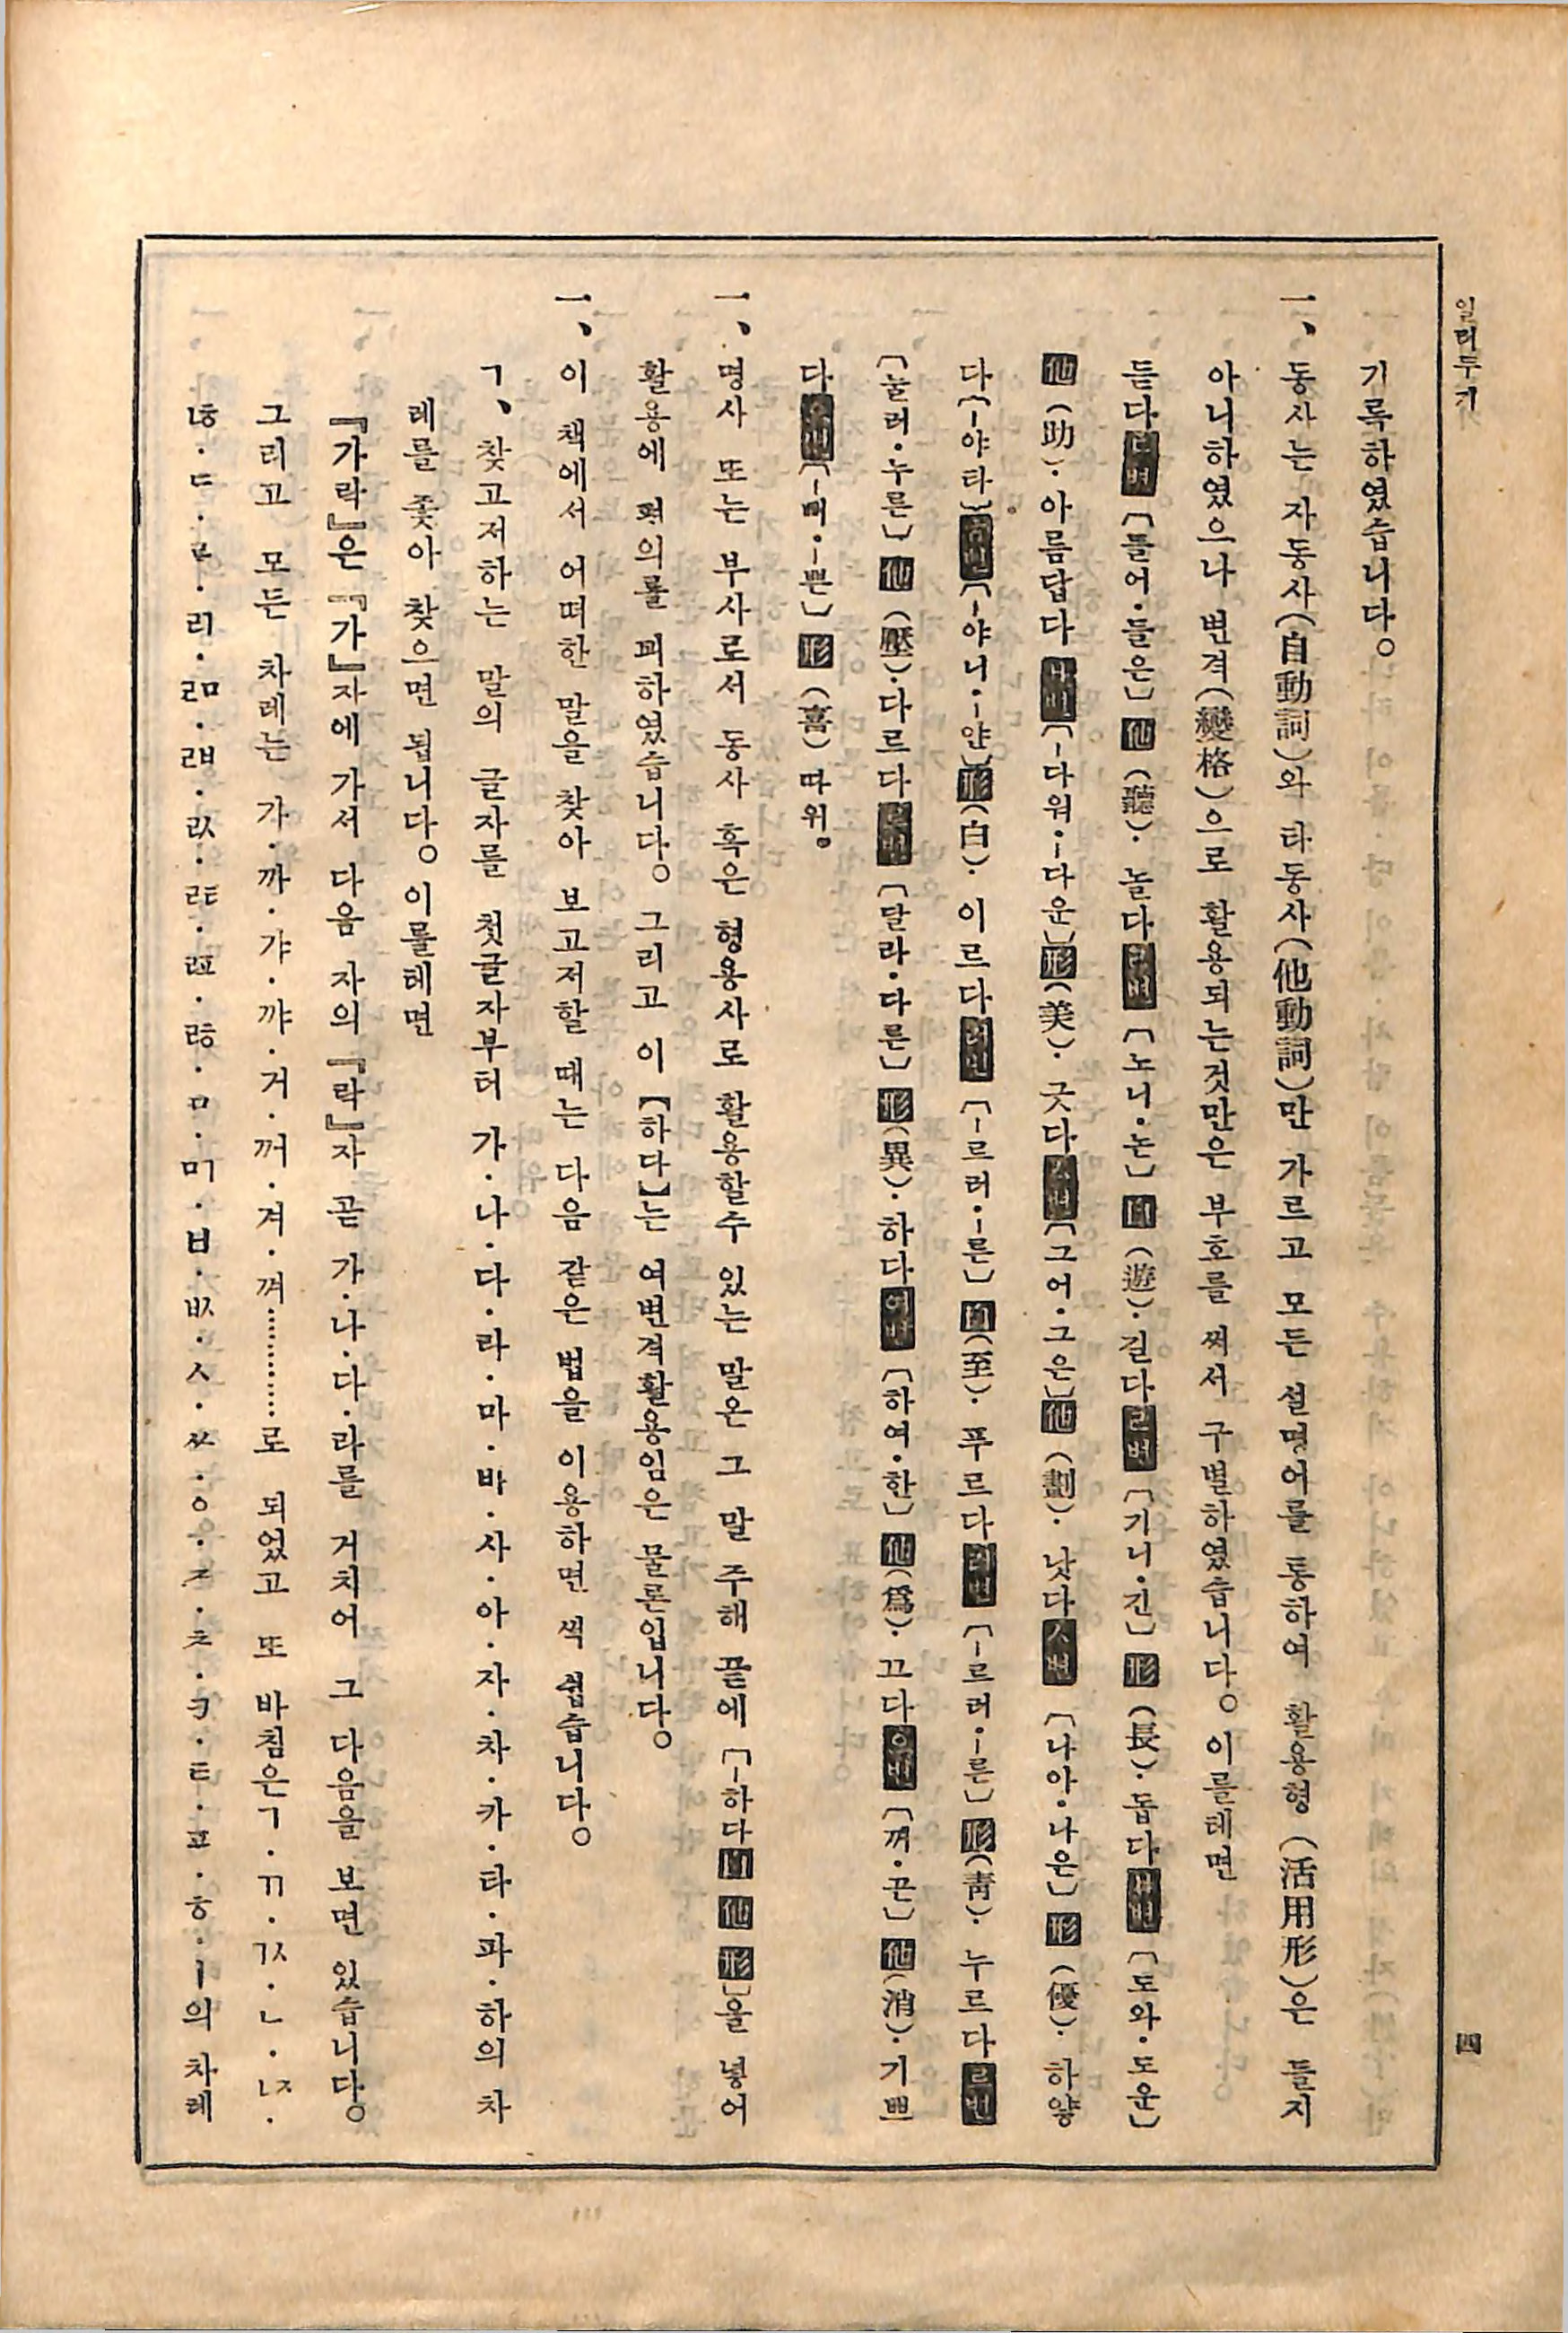 일러두기
四
기록하였습니다。
一、동사는 자동사(自動詞)와 타동사(他動詞)만 가르고 모든 설명어를 통하여 활용형(活用形)은 들지
아니하였으나 변격(變格)으로 활용되는것만은 부호를 써서 구별하였습니다。이를테면
듣다ㄷ변〔들어·들은〕他(聽)·놀다ㄹ변〔노니·논〕自(遊)·길다ㄹ변〔기니·긴〕形(長)·돕다ㅂ변〔도와·도운〕
他(助)·아름답다ㅂ변〔ㅡ다워·ㅡ다운〕形(美)·긋다ㅅ변〔그어·그은〕他(劃)·낫다ㅅ변〔나아·나은〕形(優)·하얗
다〔ㅡ야타〕ㅎ변〔ㅡ야니·ㅡ얀〕形(白)·이르다러변〔ㅡ르러·ㅡ른〕自(至)·푸르다러변〔ㅡ르러·ㅡ른〕形(靑)·누르다르변
〔눌러·누른〕他(壓)·다르다르변〔달라·다른〕形(異)·하다여변〔하여·한〕他(爲)·끄다으변〔꺼·끈〕他(消)·기쁘
다으변〔ㅡ뻐·ㅡ쁜〕形(喜)따위。
一、명사 또는 부사로서 동사 혹은 형용사로 활용할수 있는 말은 그 말 주해 끝에〔ㅡ하다自他形〕을 넣어
활용에 편의를 꾀하였습니다。그리고 이【하다】는 여변격활용임은 물론입니다。
一、이 책에서 어떠한 말을 찾아 보고저할 때는 다음 같은 법을 이용하면 썩 쉽습니다。
ㄱ、찾고저하는 말의 글자를 첫글자부터 가·나·다·라·마·바·사·아·자·차·카·타·파·하의 차
례를 좇아 찾으면 됩니다。이를테면
『가락』은『가』자에 가서 다음 자의『락』자 곧 가·나·다·라를 거치어 그 다음을 보면 있습니다。
그리고 모든 차례는 가·까·갸·꺄·거·꺼·겨·껴…………로 되었고 또 바침은ㄱ·ㄲ·ㄳ·ㄴ·ㄵ·
ㄶ·ㄷ·ㄹ·ㄺ·ㄻ·ㄼ·ㄽ·ㄾ·ㄿ·ㅀ·ㅁ·ㅁㄱ·ㅂ·ㅄ·ㅅ·ㅆ·ㅇ·ㅈ·ㅊ·ㅋ·ㅌ·ㅍ·ㅎ·ㅣ의 차례